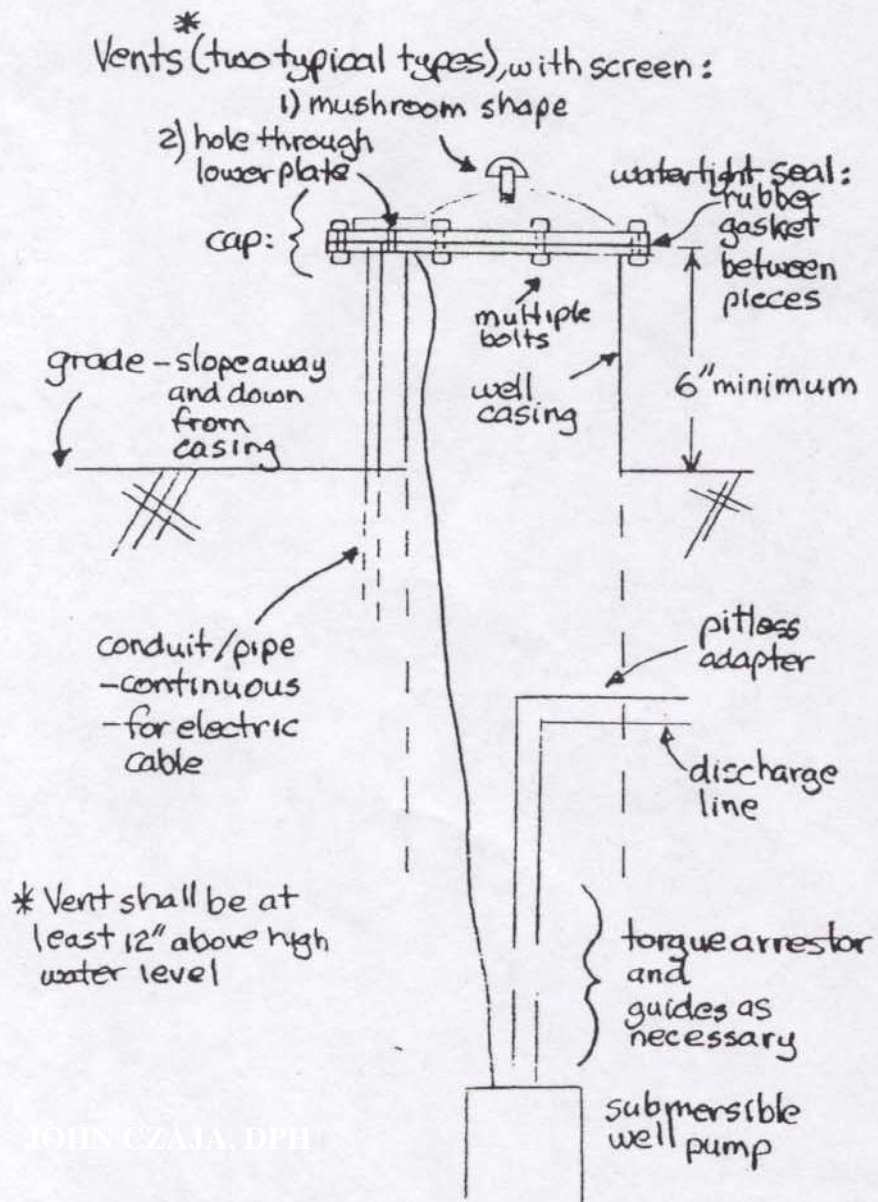 *
Vents (two typical types), with screen:
1) mushroom shape
2) hole through
lower plate
cap:
watertight seal:
rubber
gasket
between
pieces
multiple
bolts
well
casing
6" minimum
grade - slope away
and down
from
casing
conduit/pipe
-continuous
-for electric
cable
pitless
adapter
discharge
line
* Vent shall be at
least 12" above high
water level
torque arrestor
and
guides as
necessary
submersible
well pump
JOHN CZAJA, DPH